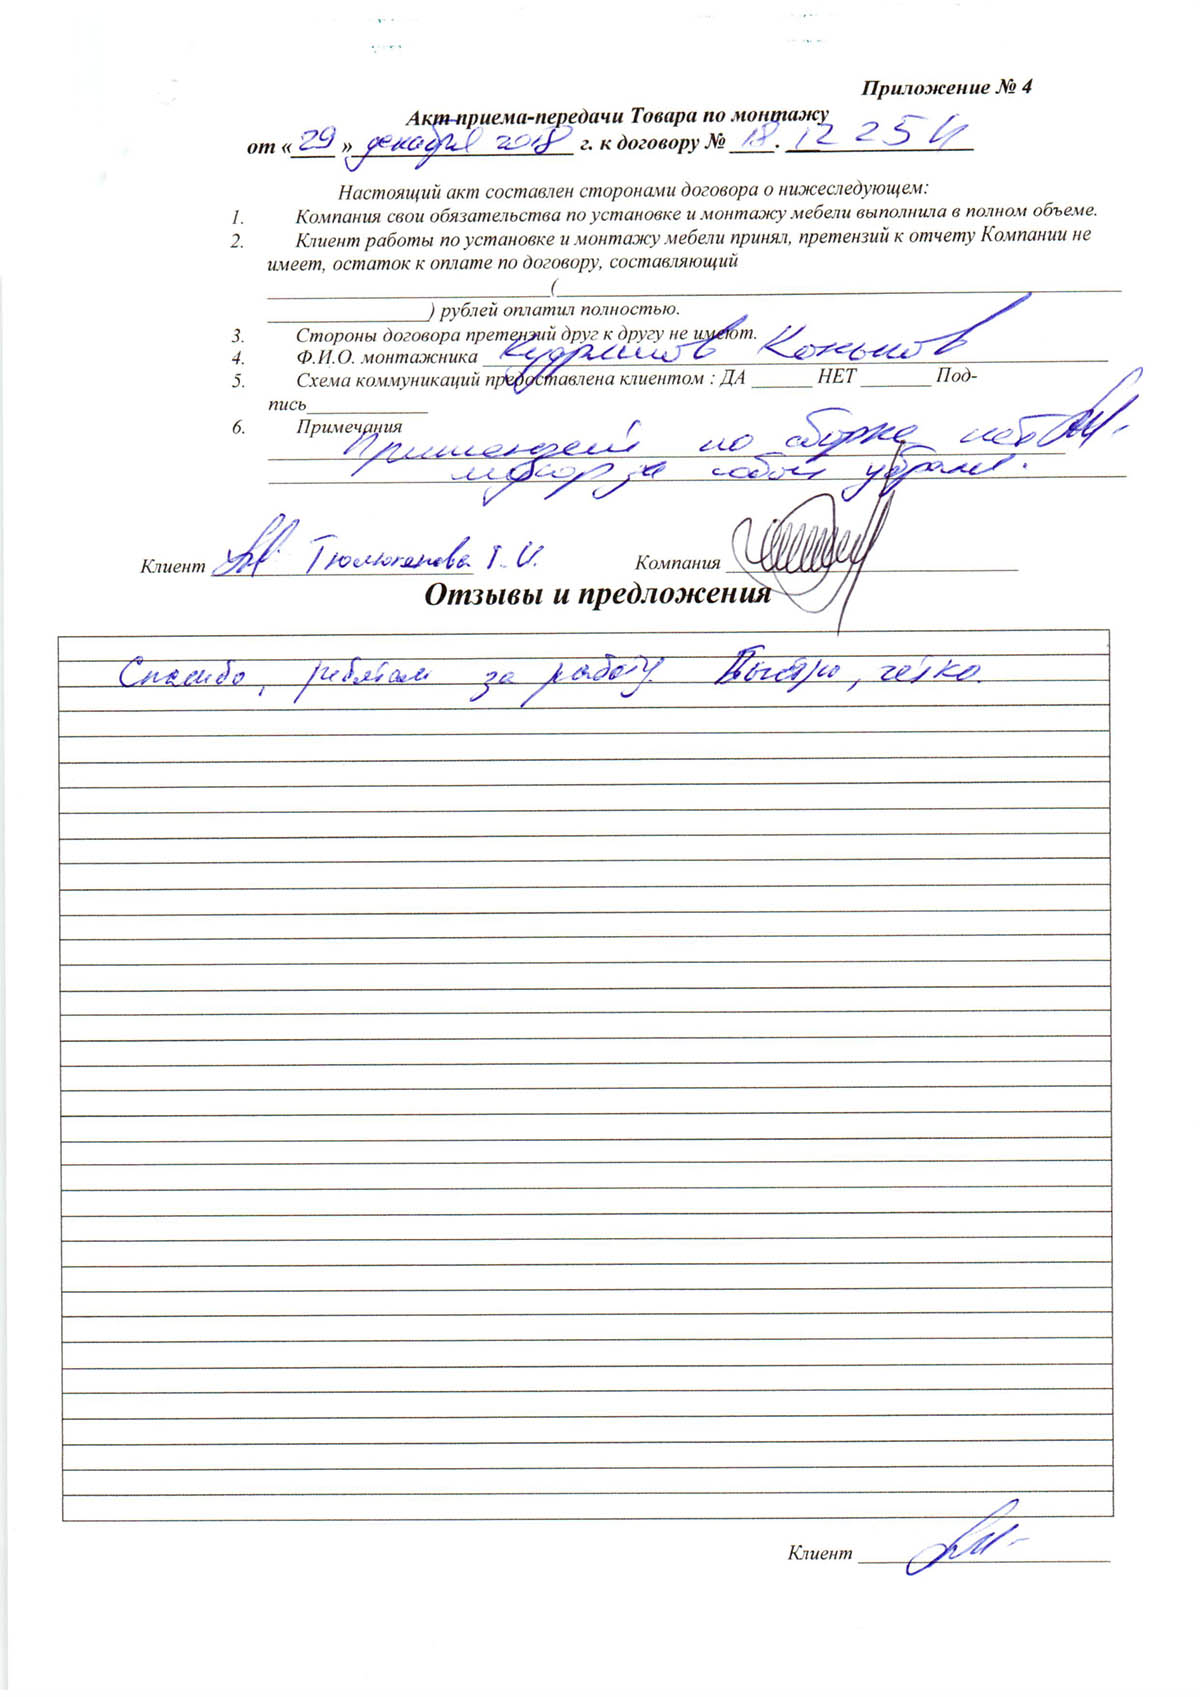 Приложение № 4
Акт приема-передачи Товара по монтажу
от «29» декабря 2018 г. к договору № 18. 12 254
Настоящий акт составлен сторонами договора о нижеследующем:
1. Компания свои обязательства по установке и монтажу мебели выполнила в полном объеме.
2. Клиент работы по установке и монтажу мебели принял, претензий к отчету Компании не
имеет, остаток к оплате по договору, составляющий
(
) рублей оплатил полностью.
3. Стороны договора претензий друг к другу не имеют.
4. Ф.И.О. монтажника
5. Схема коммуникаций предоставлена клиентом : ДА ______ НЕТ _______ Под-
пись____________
6. Примечания
по сборке нет
мусор за собой убрали.
Клиент Т. И. Компания
Отзывы и предложения
Спасибо, ребятам за работу. Быстро, четко.
Клиент